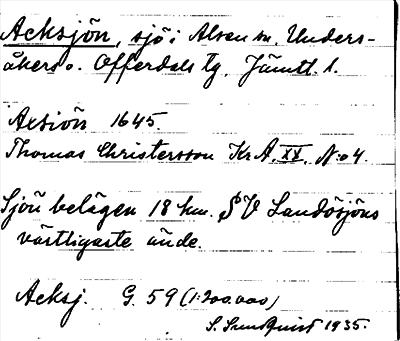 Acksjön, sjö i Alsen sn. Unders-
åkers o. Offerdals tg. Jämtl. l.
Axsiön 1645.
Thomas Christersson Kr A. XX. N:o 4.
Sjön belägen 18 km. SV Landösjöns
västligaste ände.
Acksj. G. 59 (1:200.000)
S. Sundquist 1935.